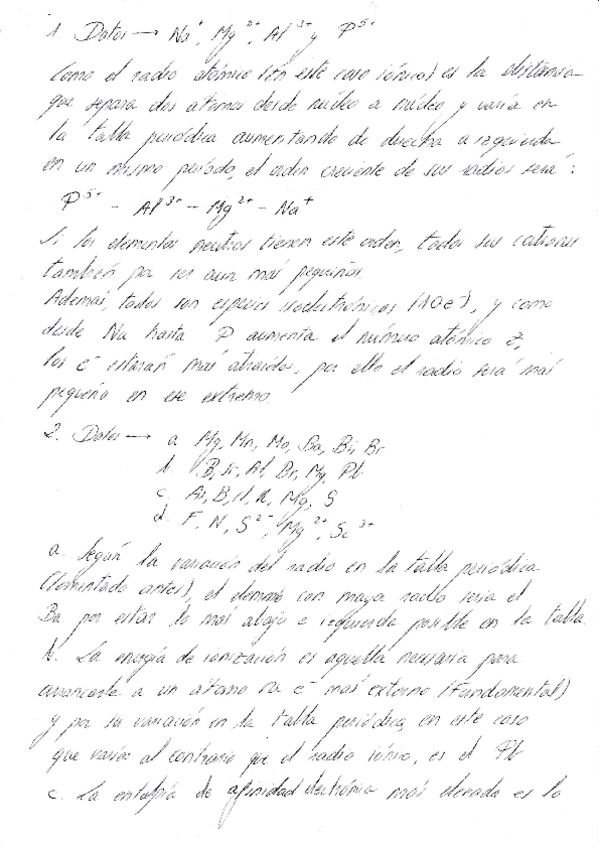 1 Datos → Na⁺, Mg²⁺, Al³⁺ y P⁵⁺
Como el radio atómico (en este caso iónico) es la distancia
que separa dos átomos desde núcleo a núcleo y varía en
la tabla periódica aumentando de derecha a izquierda
en un mismo período, el orden creciente de sus radios será:
P⁵⁺ - Al³⁺ - Mg²⁺ - Na⁺
Si los elementos neutros tienen este orden, todos sus cationes
también por ser aun más pequeños.
Además, todos son especies isoelectrónicas (10e⁻), y como
desde Na hasta P aumenta el número atómico Z,
los e⁻ estarán más atraídos, por ello el radio será más
pequeño en ese extremo
2. Datos → a. Mg, Mn, Mo, Ba, Bi, Br
b. B, Al, Br, Mg, Pb
c. B, Mg, S
d. F, N, S²⁻, Mg²⁺, Sc³⁺
a. Según la variación del radio en la tabla periódica
(Comentado antes), el elemento con mayor radio sería el
Ba por estar lo más abajo e izquierda posible en la tabla.
b. La energía de ionización es aquella necesaria para
arrancarle a un átomo e⁻ más externo (Fundamental)
y por su variación en la tabla periódica, en este caso
que varía al contrario que el radio iónico, es el Pb
c. La entalpía de afinidad electrónica más elevada es la